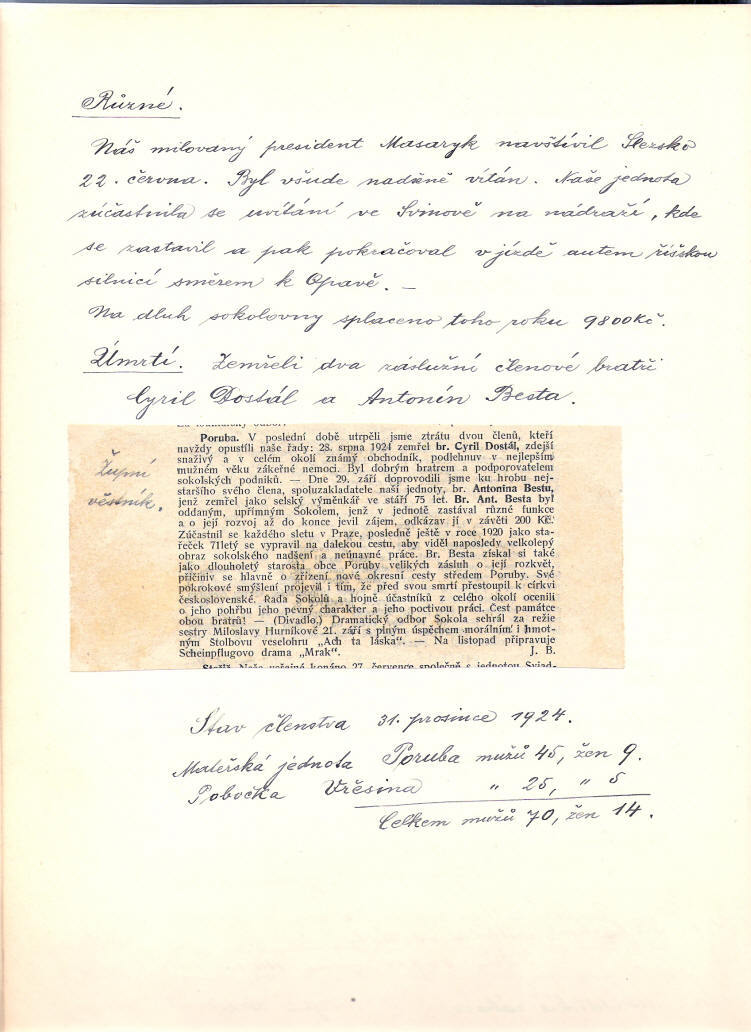 Různé.
Náš milovaný president Masaryk navštívil Slezsko
22. června. Byl všude nadšeně vítán. Naše jednota
zúčastnila se uvítání ve Svinově na nádraží, kde
se zastavil a pak pokračoval v jízdě autem říšskou
silnicí směrem k Opavě. —
Na dluh sokolovny splaceno toho roku 9800 Kč.
Úmrtí. Zemřeli dva záslužní členové bratři
Cyril Dostál a Antonín Besta.
Župní
věstník.
Poruba. V poslední době utrpěli jsme ztrátu dvou členů, kteří
navždy opustili naše řady: 28. srpna 1924 zemřel br. Cyril Dostál, zdejší
snaživý a v celém okolí známý obchodník, podlehnuv v nejlepším
mužném věku zákeřné nemoci. Byl dobrým bratrem a podporovatelem
sokolských podniků. — Dne 29. září doprovodili jsme ku hrobu nej-
staršího svého člena, spoluzakladatele naší jednoty, br. Antonína Bestu,
jenž zemřel jako selský výměnkář ve stáří 75 let. Br. Ant. Besta byl
oddaným, upřímným Sokolem, jenž v jednotě zastával různé funkce
a o její rozvoj až do konce jevil zájem, odkázav jí v závěti 200 Kč.
Zúčastnil se každého sletu v Praze, posledně ještě v roce 1920 jako sta-
řeček 71letý se vypravil na dalekou cestu, aby viděl naposledy velkolepý
obraz sokolského nadšení a neúnavné práce. Br. Besta získal si také
jako dlouholetý starosta obce Poruby velikých zásluh o její rozkvět,
přičiniv se hlavně o zřízení nové okresní cesty středem Poruby. Své
pokrokové smýšlení projevil i tím, že před svou smrtí přestoupil k církvi
československé. Řada Sokolů a hojně účastníků z celého okolí ocenili
o jeho pohřbu jeho pevný charakter a jeho poctivou práci. Čest památce
obou bratrů! — (Divadlo.) Dramatický odbor Sokola sehrál za režie
sestry Miloslavy Hurníkové 21. září s plným úspěchem morálním i hmot-
ným Štolbovu veselohru „Ach ta láska“. — Na listopad připravuje
Scheinpflugovo drama „Mrak“. J. B.
Stav členstva 31. prosince 1924.
Mateřská jednota Poruba mužů 45, žen 9.
Pobočka Vřesina „ 25, „ 5
Celkem mužů 70, žen 14.